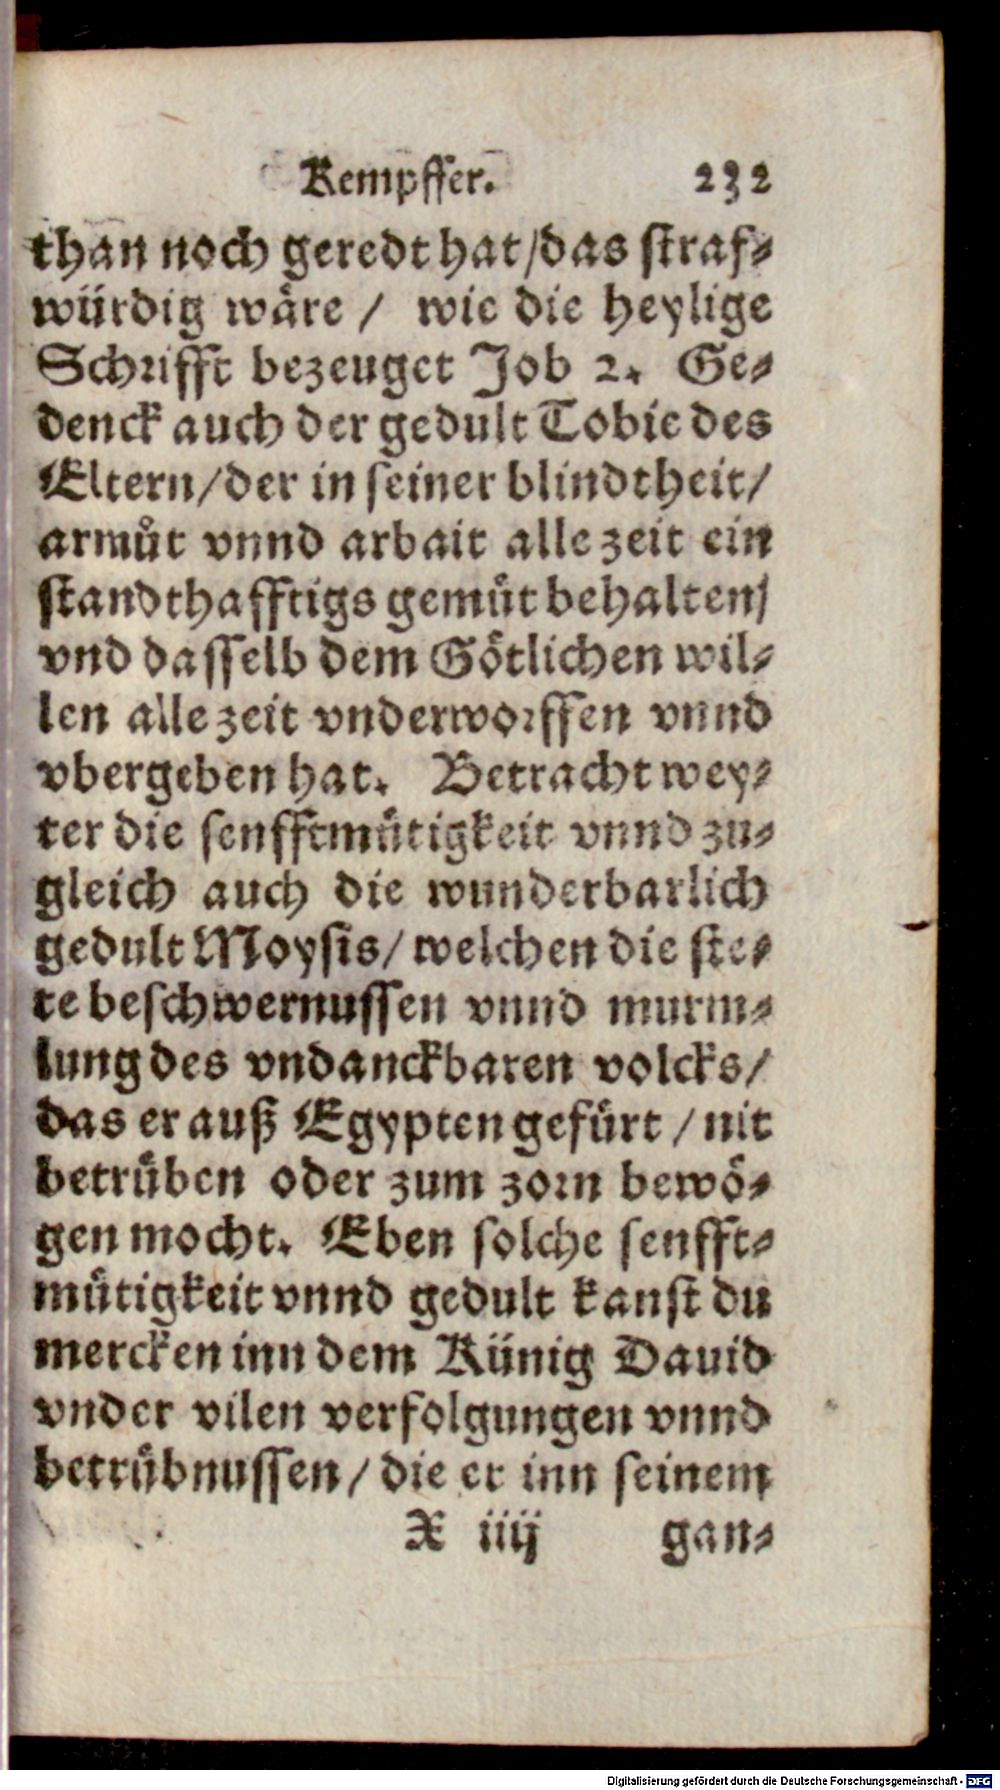 Kempffer. 232
than noch geredt hat/das straf-
würdig wäre / wie die heylige
Schrifft bezeuget Job 2. Ge-
denck auch der gedult Tobie des
Eltern/der in seiner blindtheit/
armůt vnnd arbait alle zeit ein
standthafftigs gemüt behalten/
vnd dasselb dem Götlichen wil-
len alle zeit vnderworffen vnnd
vbergeben hat. Betracht wey-
ter die senfftmütigkeit vnnd zu-
gleich auch die wunderbarlich
gedult Moysis/ welchen die ste-
te beschwernussen vnnd murm-
lung des vndanckbaren volcks/
das er auß Egypten gefürt / nit
betrüben oder zum zorn bewö-
gen mocht. Eben solche senfft-
mütigkeit vnnd gedult kanst du
mercken inn dem Künig Dauid
vnder vilen verfolgungen vnnd
betrübnussen/ die er inn seinem
X iiij gan-
Digitalisierung gefördert durch die Deutsche Forschungsgemeinschaft - DFG